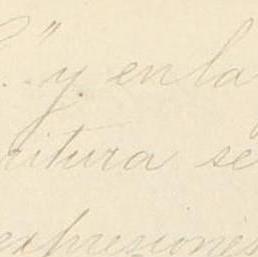 " y en la
ritura se
expresiones